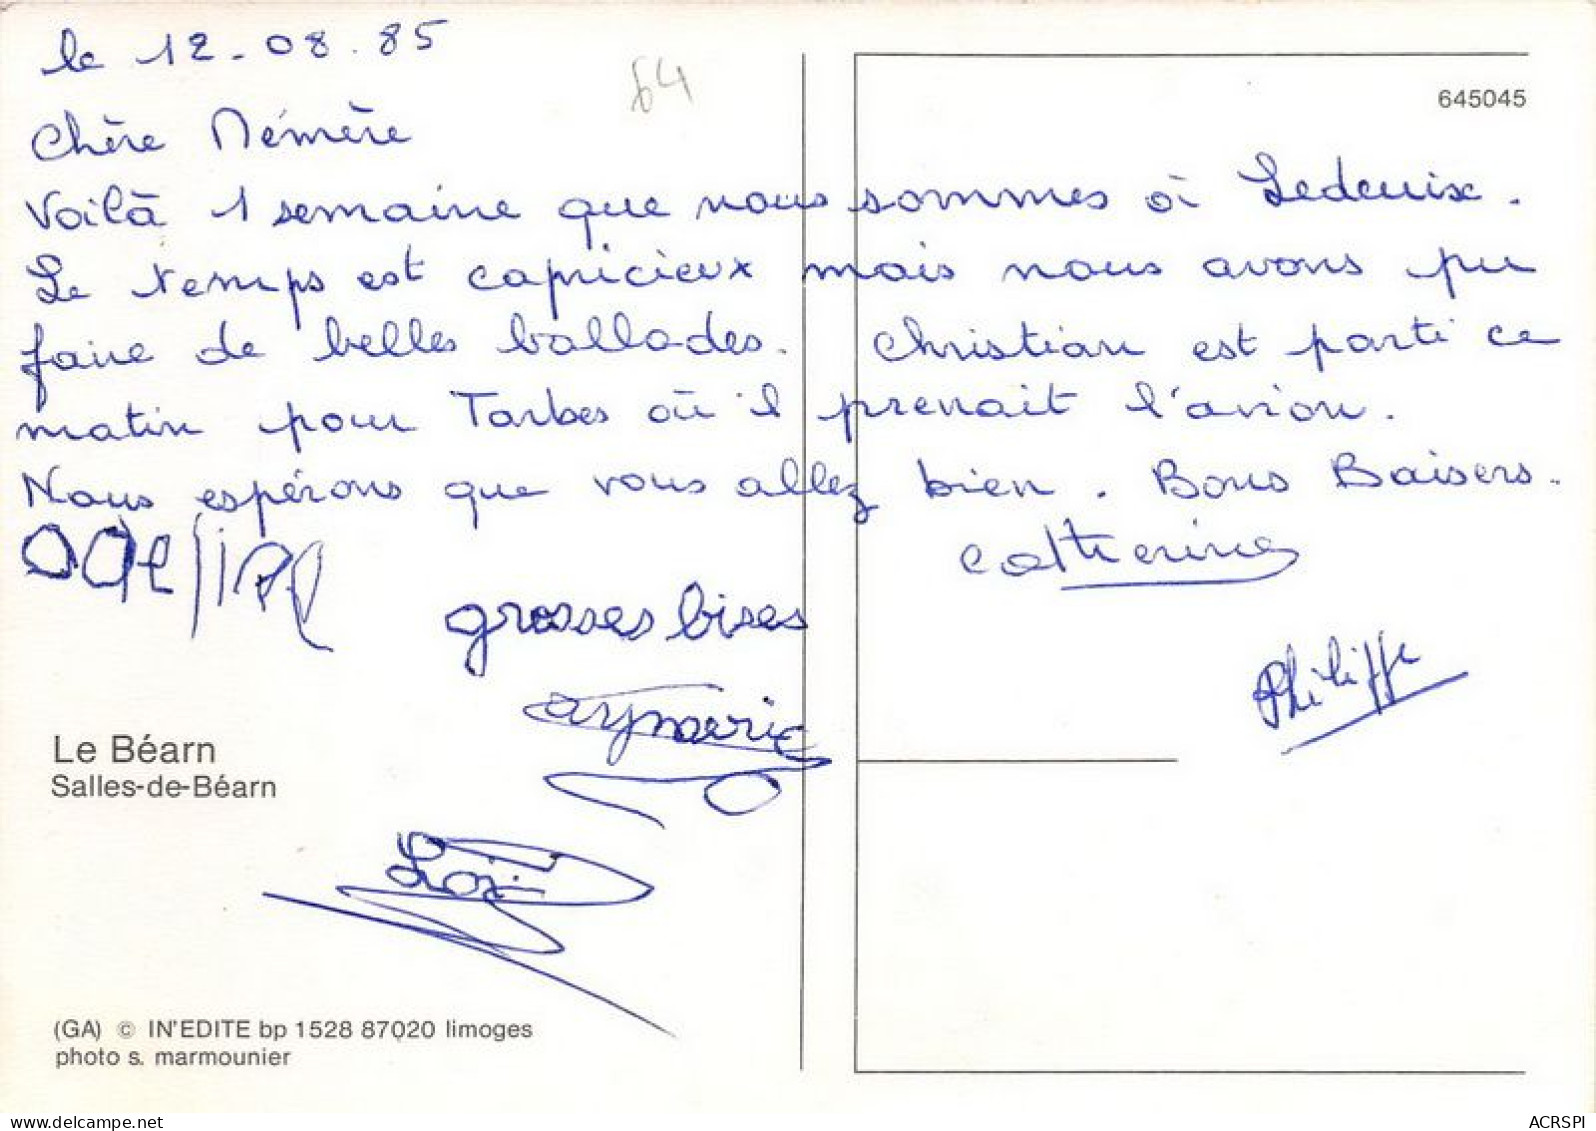 le 12-08.85
64
645045
Chère Mémère
Voilà 1 semaine que nous sommes à Ledeuix.
Le temps est capricieux mais nous avons pu
faire de belles ballades. Christian est parti ce
matin pour Tarbes où il prenait l'avion.
Nous espérons que vous allez bien. Bons Baisers.
Catherine
grosses bises
Philippe
aymeric
Le Béarn
Salles-de-Béarn
(GA) © IN'EDITE bp 1528 87020 limoges
photo s. marmounier
www.delcampe.net
ACRSPI